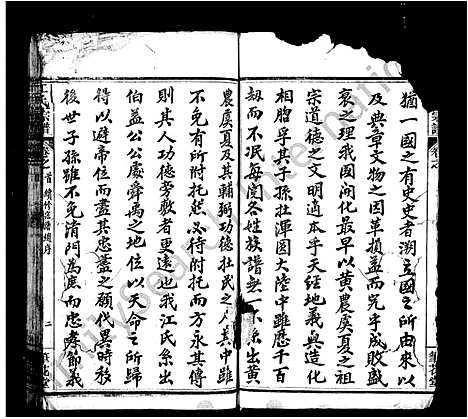 猶一國之有史史者溯立國之所由來以
及典章文物之因革損益而究乎成敗盛
衰之理我國開化最早以黃農虞夏之叔祖
宗道德之文明適本乎天經地義與造化
相胎孚其子孫拄渾圓大陸中雖歷千百
劫而不泯每閱各姓族譜無一不系出黃
農虞夏及其輔弼功德壯民之人其中雖
不免有所附托然必待附托者而方興
則其人功德旁敷者更遠也我江氏系出
伯益公公處舜禹之地位以天命之所歸
得以避帝位而盡其忠藎之願代異時移
後世子孫雖不免清門為庶而忠孝節義
宗譜
卷之首
續修宗譜總序
二
筆花堂